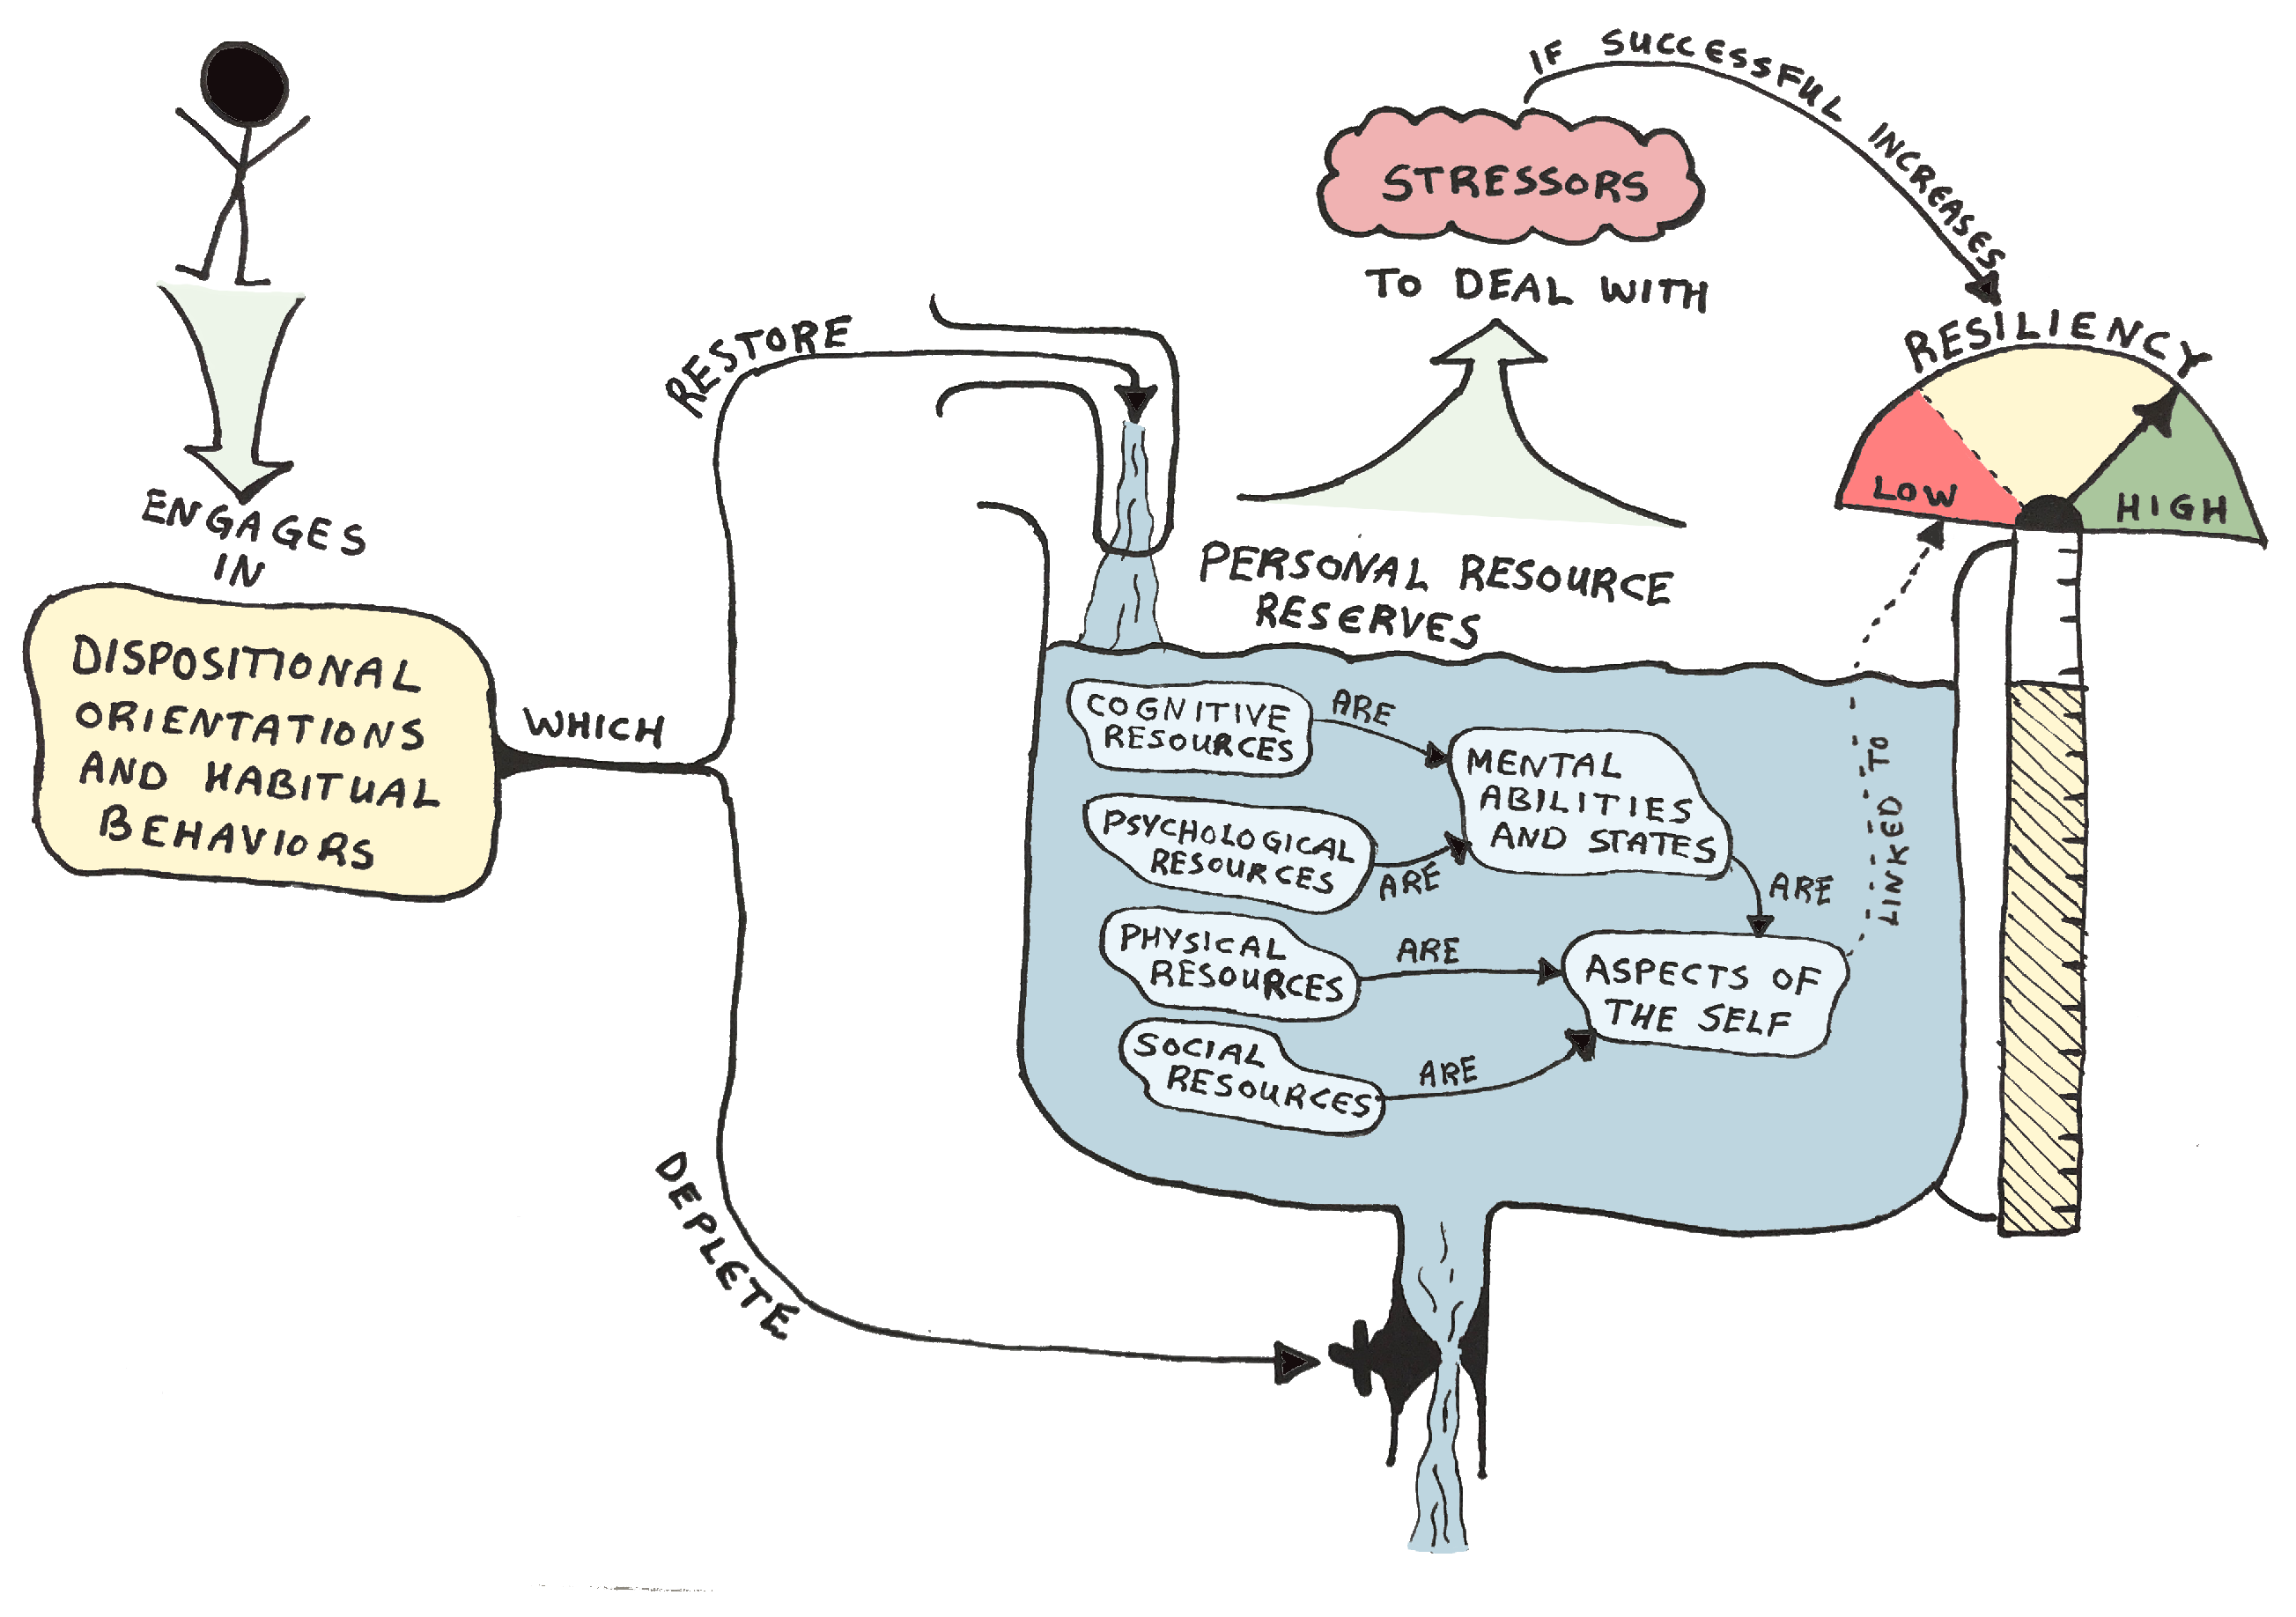 ENGAGES
IN
DISPOSITIONAL
ORIENTATIONS
AND HABITUAL
BEHAVIORS
WHICH
RESTORE
DEPLETE
STRESSORS
TO DEAL WITH
PERSONAL RESOURCE
RESERVES
COGNITIVE
RESOURCES
ARE
MENTAL
ABILITIES
AND STATES
PSYCHOLOGICAL
RESOURCES
ARE
ARE
PHYSICAL
RESOURCES
ARE
ASPECTS OF
THE SELF
SOCIAL
RESOURCES
ARE
LINKED TO
IF SUCCESSFUL INCREASES
RESILIENCY
LOW
HIGH